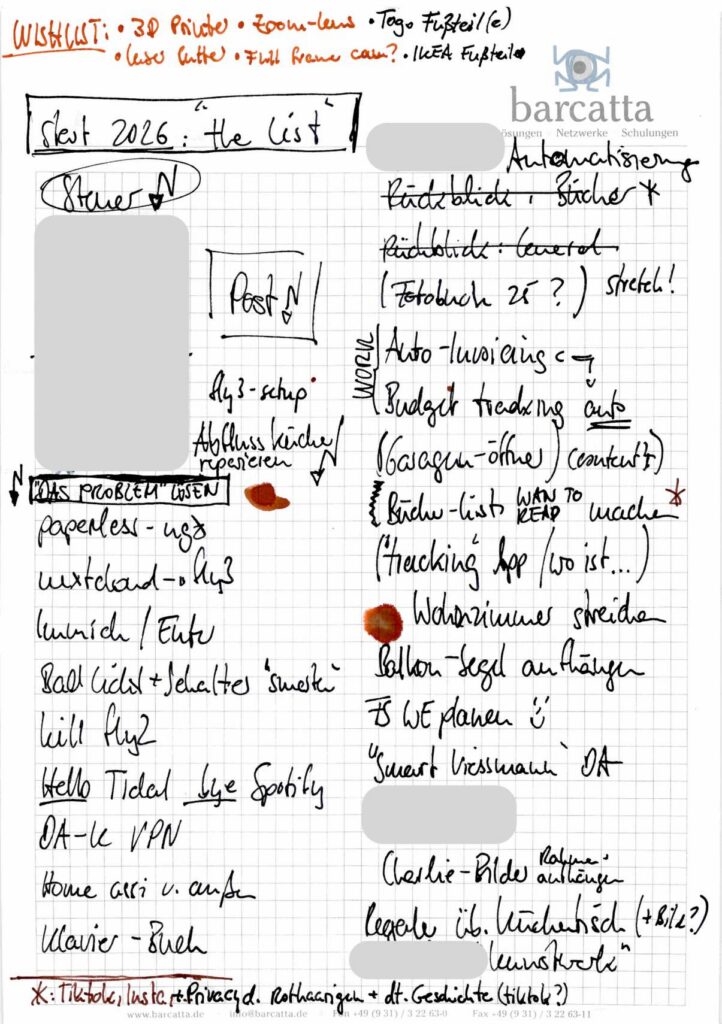 WISHLIST: • 3D Printer • Zoom-Lens • Togo Fußteil(e)
• Laser Cutter • Full Frame cam? • IKEA Fußteile
barcatta
ösungen · Netzwerke · Schulungen
Start 2026: "the List"
Steuer
Post
fly3-setup
Abfluss Küche
reparieren
"DAS PROBLEM" LÖSEN
paperless-ngx
nextcloud → fly3
Immich / Ente
Bad Licht + Schalter "smarten"
kill fly2
Hello Tidal bye Spotify
DA-K VPN
Home assi v. außen
Klavier-Buch
Automatisierung
Rückblick: Bücher *
Rückblick: General
(Fotobuch 25?) stretch!
WORK
Auto-Invoicing
Budget tracking auto
(Garagen-öffner) (content?)
Bücher-liste WAN TO READ machen *
("tracking" App / wo ist...)
Wohnzimmer streichen
Balkon-Segel aufhängen
WE planen
"Smart Viessmann" DA
Charlie-Bilder Rahmen + aufhängen
Regale üb. Küchentisch (+Bild?)
Kunstwerk"
*: Tiktok, Insta, + Privacy d. Rothaarigen + dt. Geschichte (tiktok?)
www.barcatta.de · info@barcatta.de · Fon +49 (9 31) / 3 22 63-0 · Fax +49 (9 31) / 3 22 63-11